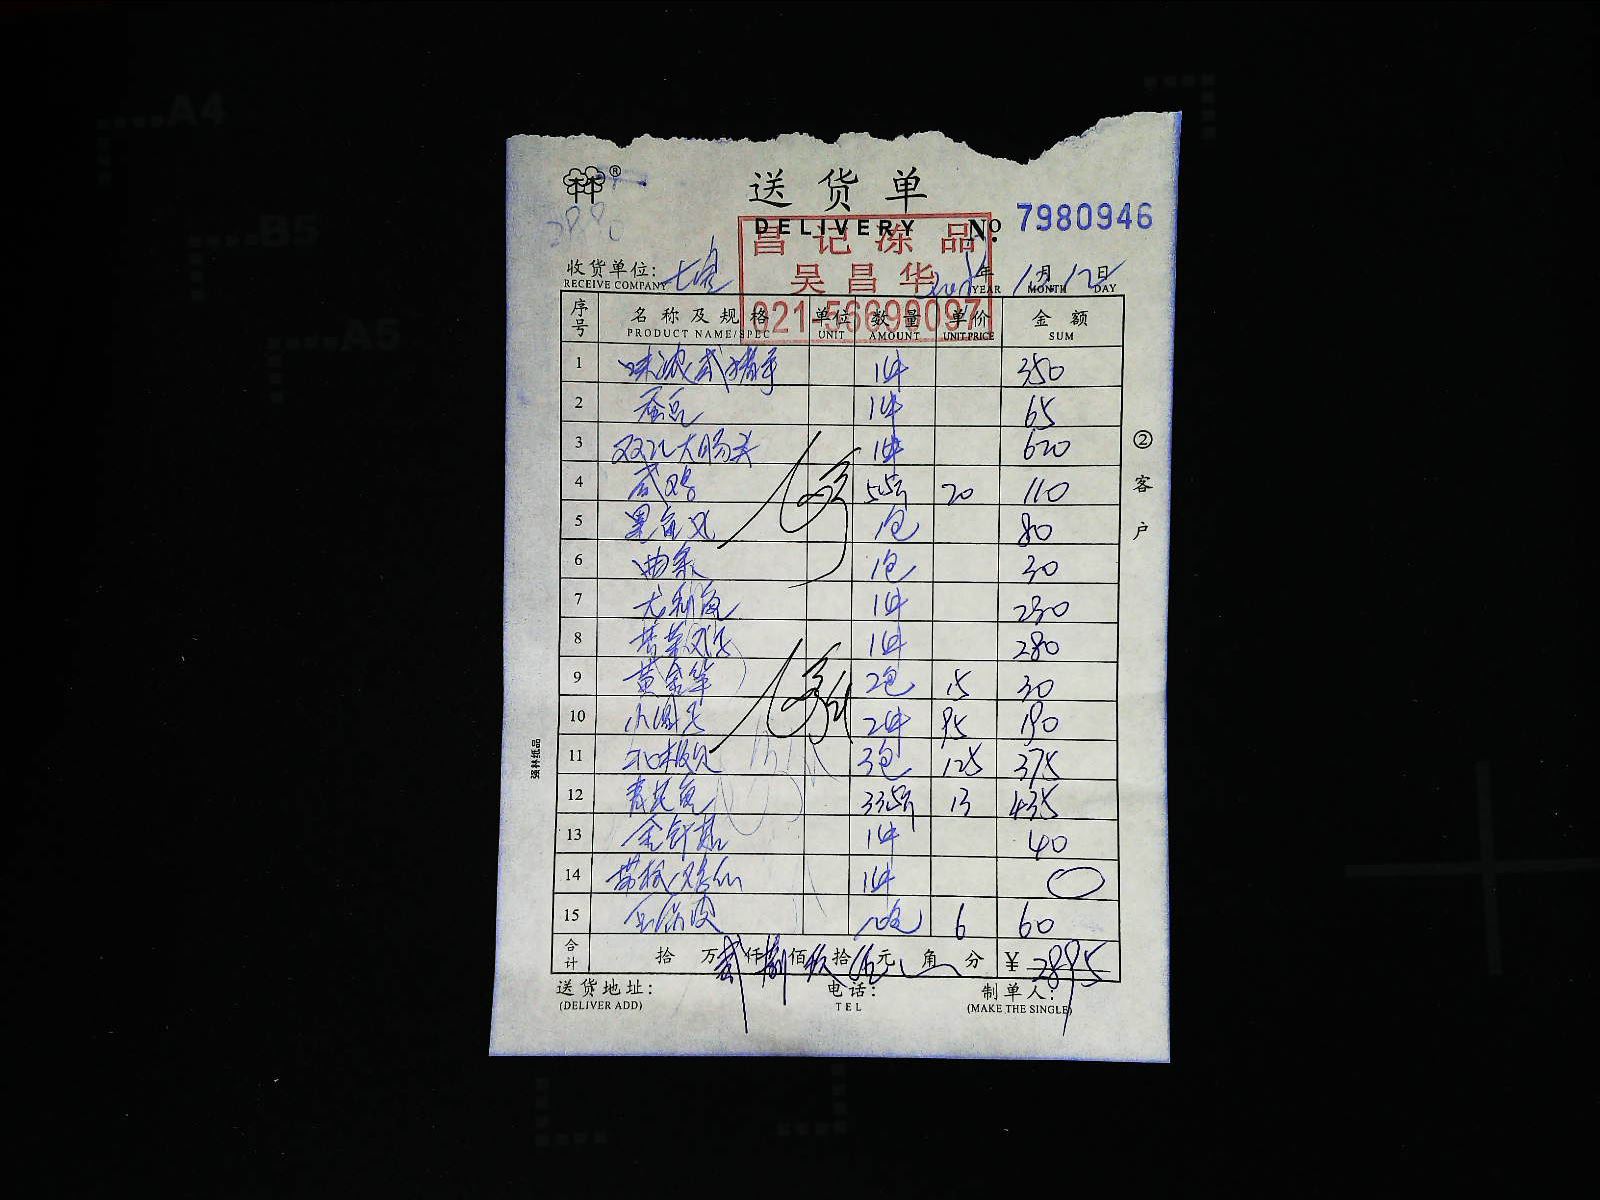 A4
B5
A5
®
送货单
DELIVERY
№ 7980946
昌记冻品
吴昌华
021-56698097
收货单位:
RECEIVE COMPANY
年 1月12日
YEAR MONTH DAY
序号 名称及规格 单位 数量 单价 金额
PRODUCT NAME/SPEC UNIT AMOUNT UNIT PRICE SUM
1 味浓咸猪手 1件 350
2 蚕豆 1件 65
3 双汇大肠头 1件 620
4 咸鸡 5.5斤 20 110
5 1包 80
6 曲条 1包 30
7 1件 230
8 1件 280
9 黄金笋 2包 15 30
10 2件 95 190
11 3包 125 375
12 33.5斤 13 435
13 金针菇 1件 40
14 1件 0
15 10包 6 60
合计 拾 万 贰仟捌佰玖拾伍元 角 分 ¥ 2895
送货地址: 电话: 制单人:
(DELIVER ADD) TEL (MAKE THE SINGLE)
② 客户
强林纸品